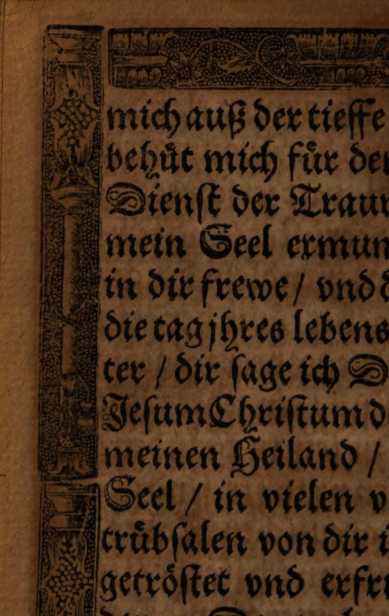 mich auß der tieffe
behüt mich für de
Dienst der Traur
mein Seel ermun
in dir frewe / vnd d
die tag jhres lebens
ter / dir sage ich D
Jesum Christum d
meinen Heiland /
Seel / in vielen v
trübsalen von dir i
getröstet vnd erfr